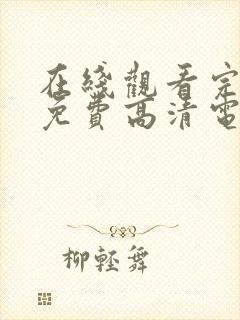 在綫觀看完
免費高清電
柳輕舞